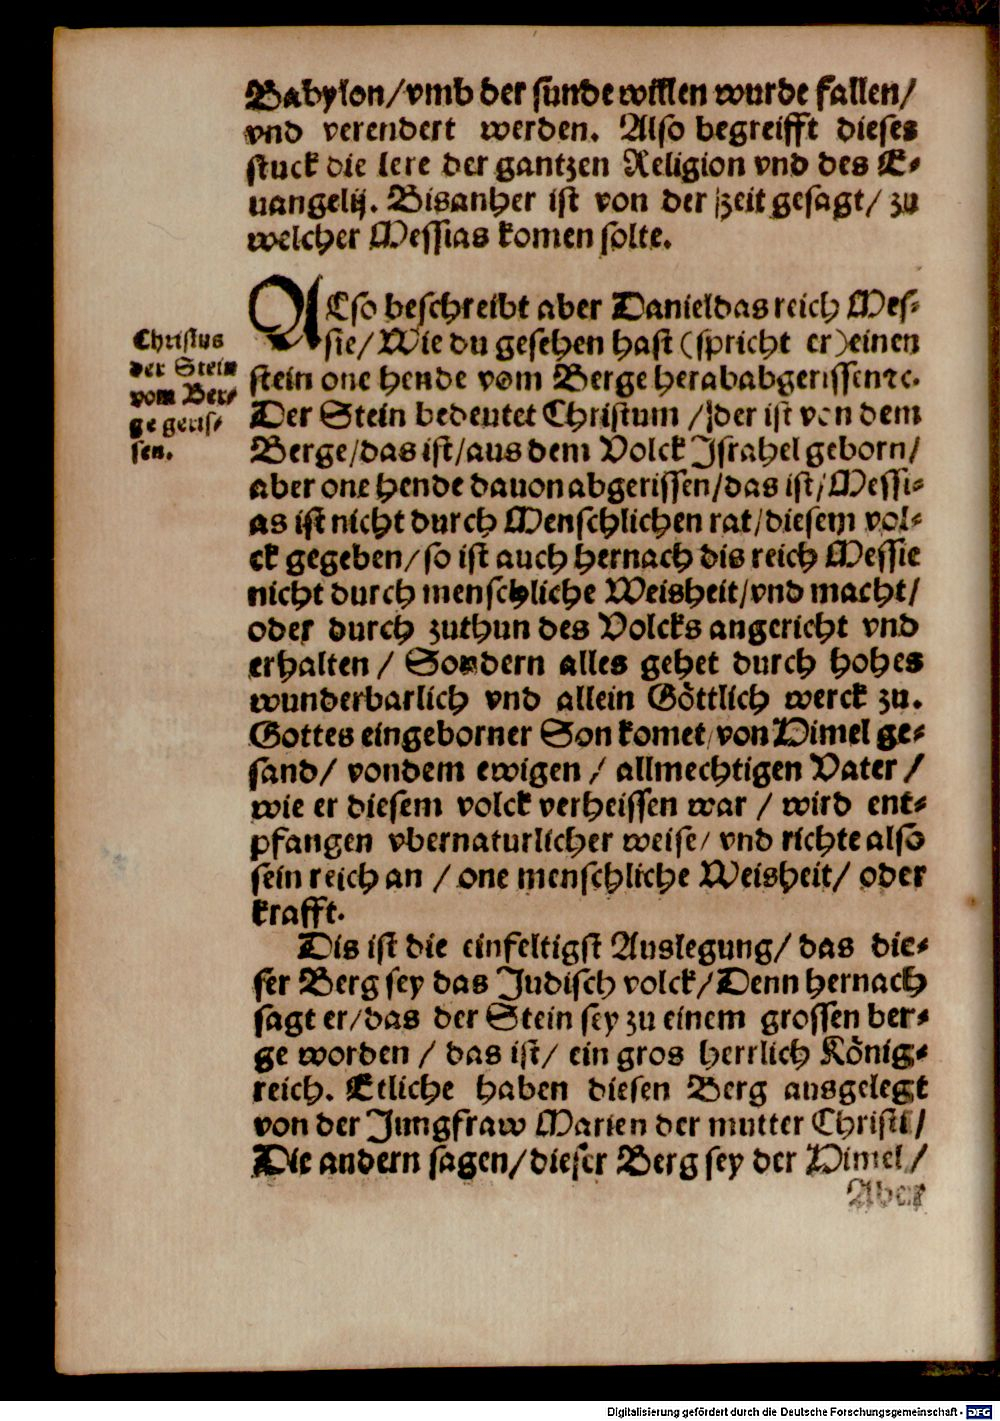 Babylon/vmb der sunde willen wurde fallen/
vnd verendert werden. Also begreifft dieses
stuck die lere der gantzen Religion vnd des E-
uangelij. Bisanher ist von der zeit gesagt/ zu
welcher Messias komen solte.
ALso beschreibt aber Danieldas reich Mes-
sie/ Wie du gesehen hast (spricht er)einen
stein one hende vom Berge herababgerissenꝛc.
Der Stein bedeutet Christum /der ist von dem
Berge/das ist/aus dem Volck Israhel geborn/
aber one hende dauon abgerissen/das ist/Messi-
as ist nicht durch Menschlichen rat/diesem vol-
ck gegeben/so ist auch hernach dis reich Messie
nicht durch menschliche Weisheit/vnd macht/
oder durch zuthun des Volcks angericht vnd
erhalten / Sondern alles gehet durch hohes
wunderbarlich vnd allein Göttlich werck zu.
Gottes eingeborner Son komet/von Himel ge-
sand/ vondem ewigen / allmechtigen Vater /
wie er diesem volck verheissen war / wird ent-
pfangen vbernaturlicher weise/ vnd richte also
sein reich an / one menschliche Weisheit/ oder
krafft.
Dis ist die einfeltigst Auslegung/ das die-
ser Berg sey das Judisch volck/Denn hernach
sagt er/das der Stein sey zu einem grossen ber-
ge worden / das ist/ ein gros herrlich König-
reich. Etliche haben diesen Berg ausgelegt
von der Jungfraw Marien der mutter Christi/
Die andern sagen/dieser Berg sey der Himel/
Aber
Christus
der Stein
vom Ber-
ge geris-
sen.
Digitalisierung gefördert durch die Deutsche Forschungsgemeinschaft - DFG